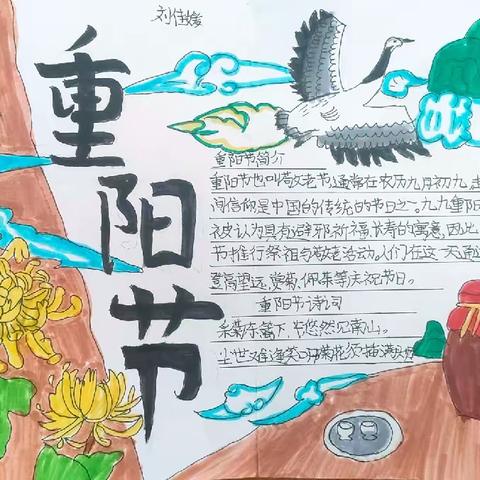 刘佳
重阳节
重阳节简介
重阳节也叫敬老节,通常在农历九月初九,
间信仰是中国的传统的节日之一。九九重阳
被认为具有辟邪祈福长寿的寓意,因此
节推行祭祖与敬老活动。人们在这一天通
登高望远、赏菊、佩茱等庆祝节日。
重阳节诗词
采菊东篱下,节悠然见南山。
尘世难逢笑口开菊花须插满头